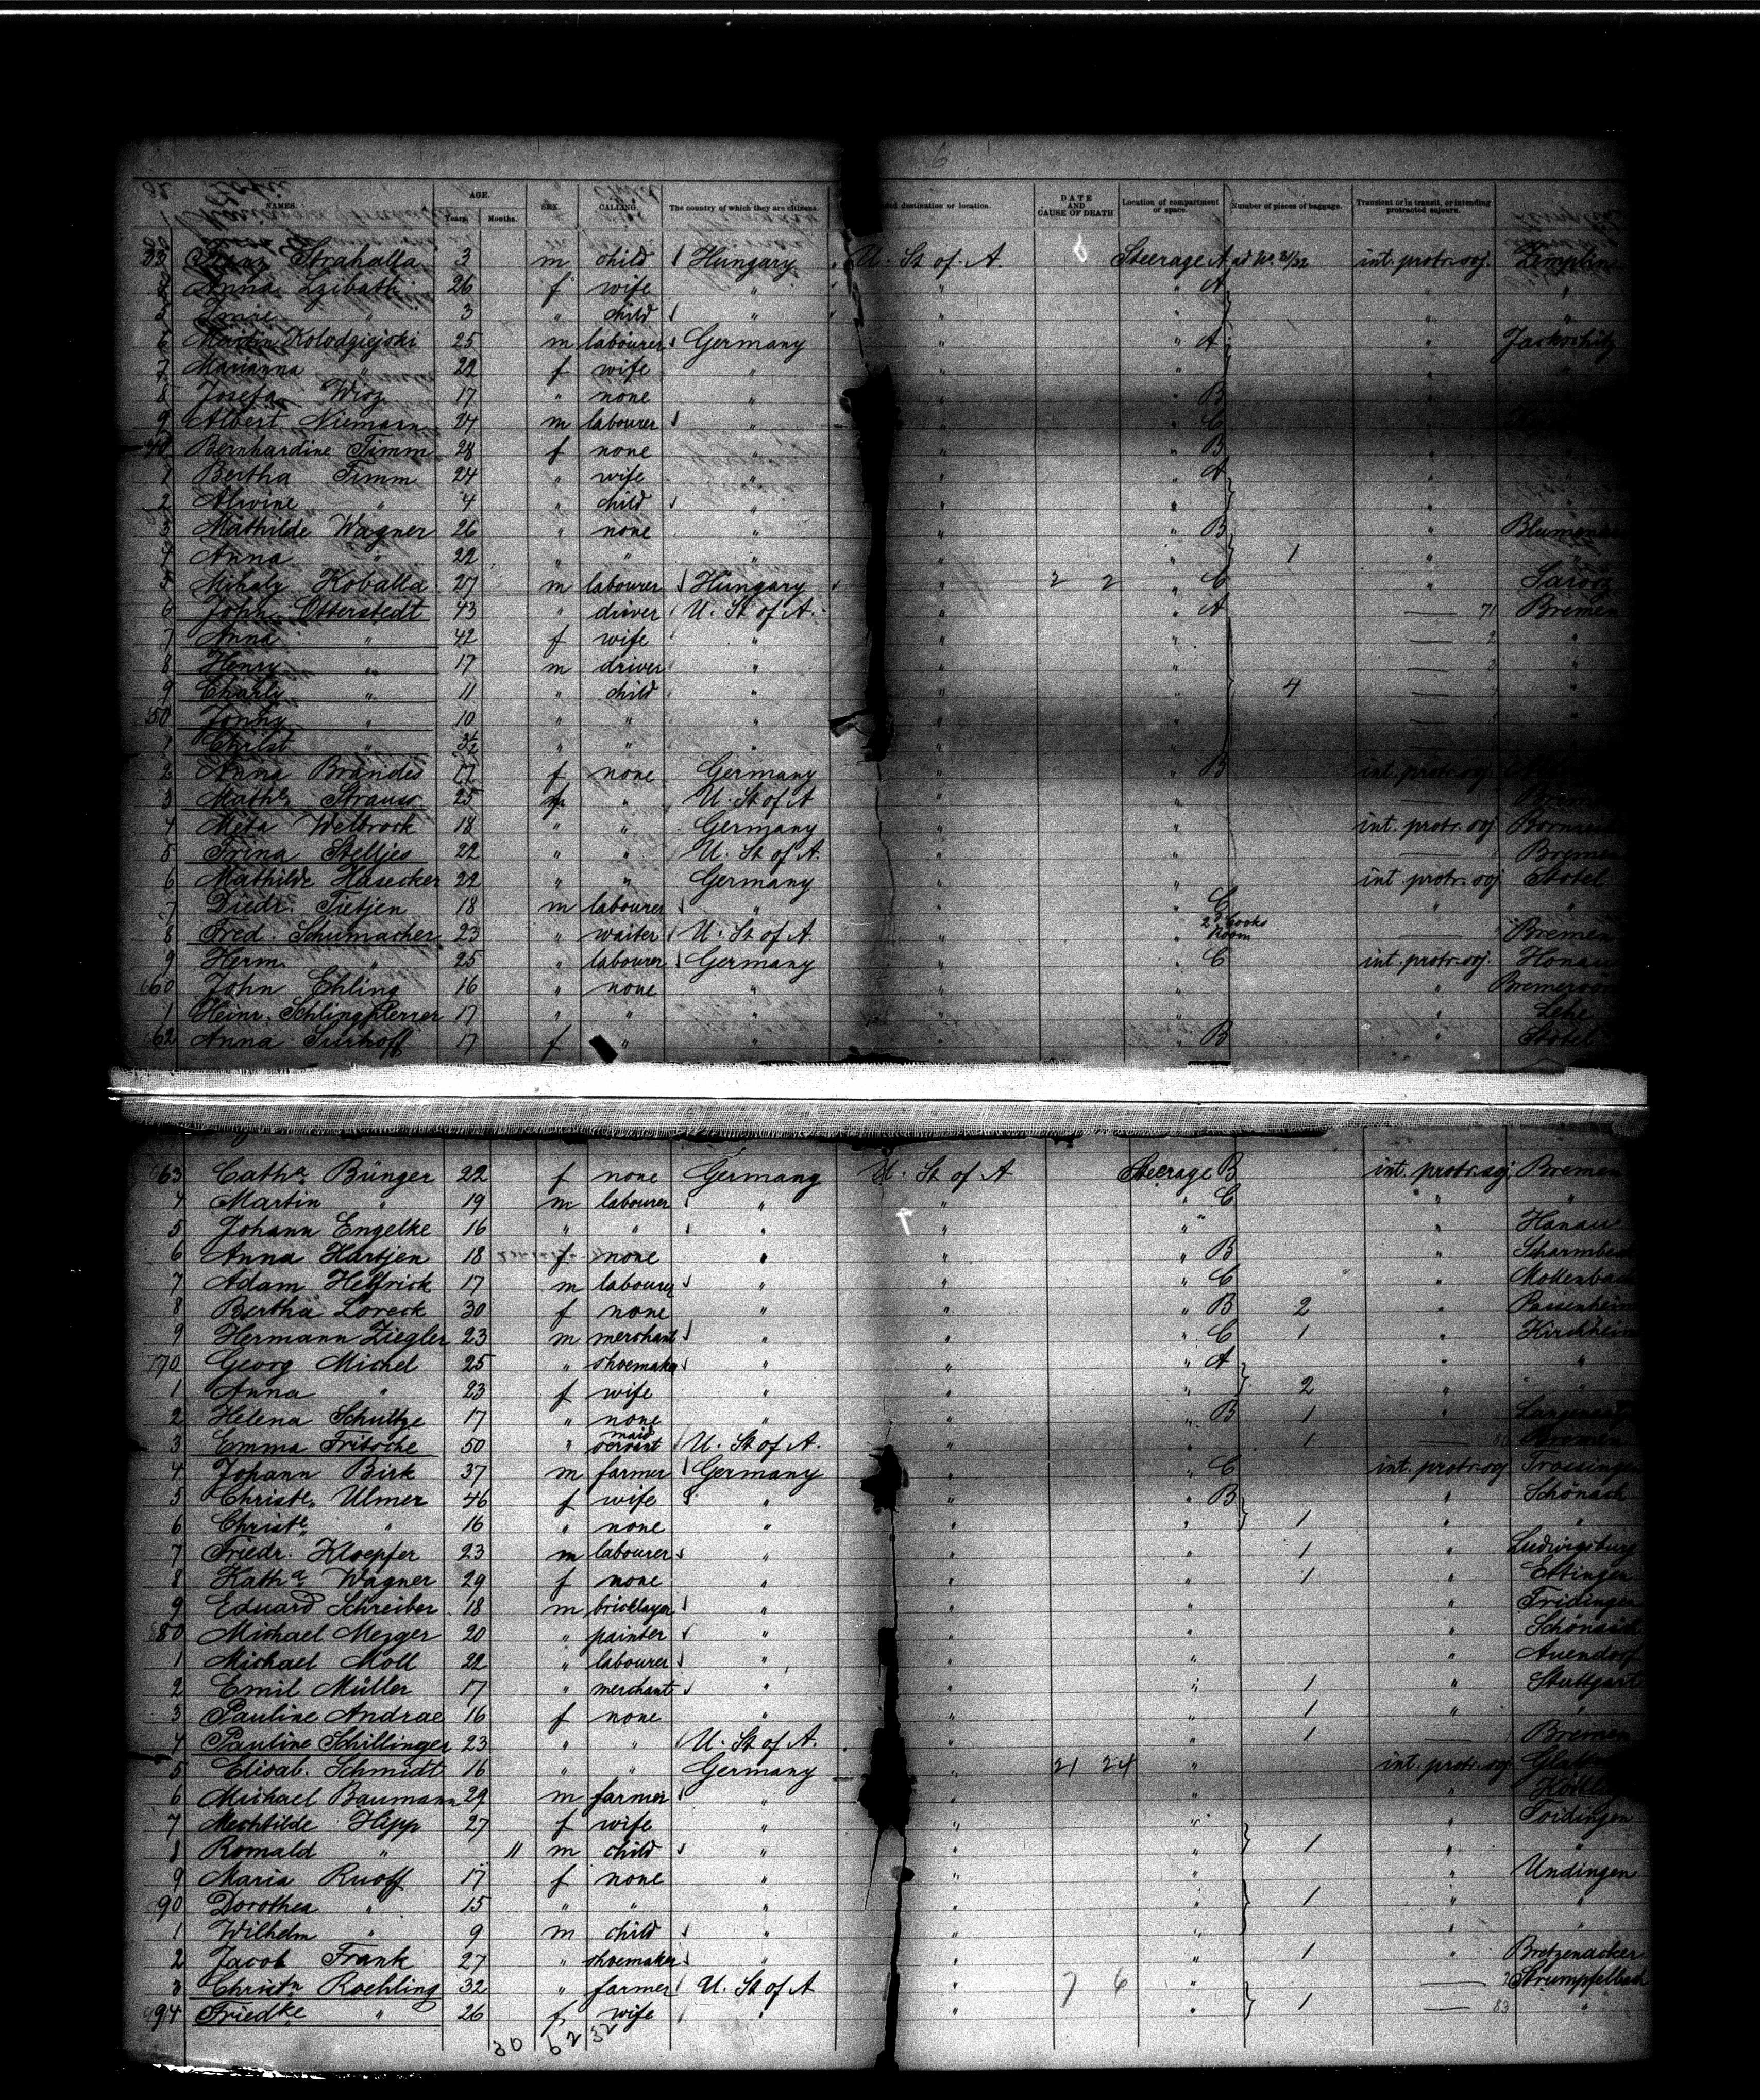 6
NAMES. AGE. Years. Months. SEX. CALLING. The country of which they are citizens. destination or location. DATE AND CAUSE OF DEATH Location of compartment or space. Number of pieces of baggage. Transient or in transit, or intending protracted sojourn.
33 Strahalla 3 m child Hungary U. St of A. Steerage A int. protr. soj. Zemplin
Anna 26 f wife " " " A " "
5 Imre " 3 " child " " " " "
6 Martin Kolodziejski 25 m labourer Germany " " A "
7 Marianna " 22 f wife " " " "
8 Josefa 17 " none " " " B "
9 Albert Niemann 24 m labourer " " " C "
40 Bernhardine Timm 28 f none " " " B "
1 Bertha Timm 24 " wife " " " A "
2 Alwine " 4 " child " " " "
3 Mathilde Wagner 26 " none " " " B "
4 Anna " 22 " " " " " 1 " "
5 Mihaly Koballa 27 m labourer Hungary " 2 2 " C "
6 John Otterstedt 43 " driver U. St of A. " " A — 71 Bremen
7 Anna " 42 f wife " " " — 2 "
8 Henry " 17 m driver " " " — 3 "
9 Charly " 11 " child " " " 4 — "
50 Jonny " 10 " " " " " —
1 Christ " " " " " " —
2 Anna Brandes 17 f none Germany " " B int. protr. soj.
3 Mathe Strauss 25 f " U. St of A " " —
4 Meta Welbrock 18 " " Germany " " int. protr. soj
5 Trina Stelljes 22 " " U. St of A. " " — Bremen
6 Mathilde Hasecker 22 " " Germany " " int. protr. soj Stotel
7 Diedr. Tietjen 18 m labourer " " " C " "
8 Fred. Schumacher 23 " waiter U. St of A. " " 2d Cooks Room — Bremen
9 Herm. " 25 " labourer Germany " " C int. protr. soj.
60 John Ehling 16 " none " " "
1 Heinr. 17 " " " " " Lehe
62 Anna Surhoff 17 f " " " " B " Stotel
63 Catha Bünger 22 f none Germany U. St of A Steerage B int. protr. soj. Bremen
4 Martin " 19 m labourer " " " C " "
5 Johann Engelke 16 " " " " " " " Hanau
6 Anna Hartjen 18 f none " " " B "
7 Adam Helfrick 17 m labourer " " " C "
8 Bertha Loreck 30 f none " " " B 2 " Passenheim
9 Hermann Ziegler 23 m merchant " " " C 1 " Kirchheim
70 Georg Michel 25 " shoemaker " " " A " "
1 Anna " 23 f wife " " " 2 " "
2 Helena Schultze 17 " none " " " B 1 "
3 Emma Fritsche 50 " maid servant U. St of A. " " 1 Bremen
4 Johann Birk 37 m farmer Germany " " C int. protr. soj Trossingen
5 Christe Ulmer 46 f wife " " " B " Schönach
6 Christe " 16 " none " " " 1 " "
7 Friedr. Kloepfer 23 m labourer " " " 1 " Ludwigsburg
8 Katha Wagner 29 f none " " " 1 " Ettingen
9 Eduard Schreiber 18 m bricklayer " " " " Fridingen
80 Michael Mezger 20 " painter " " " " Schönaich
1 Michael Moll 22 " labourer " " " " Auendorf
2 Emil Müller 17 " merchant " " " 1 " Stuttgart
3 Pauline Andrae 16 f none " " " 1 " "
4 Pauline Schillinger 23 " " U. St of A. " " 1 — Bremen
5 Elisab. Schmidt 16 " " Germany " 21 24 " int. protr. soj
6 Michael Baumann 29 m farmer " " " "
7 Mechtilde Hipp 27 f wife " " " "
8 Romald " 11 m child " " " 1 " "
9 Maria Ruoff 17 f none " " " " Undingen
90 Dorothea " 15 " " " " " 1 " "
1 Wilhelm " 9 m child " " " " "
2 Jacob Frank 27 " shoemaker " " " 1 " Bretzenacker
3 Christn Roehling 32 " farmer U. St of A " 7 6 " — Strumpfelbach
94 Friedke " 26 f wife " " " 1 — 83 "
30 62 32